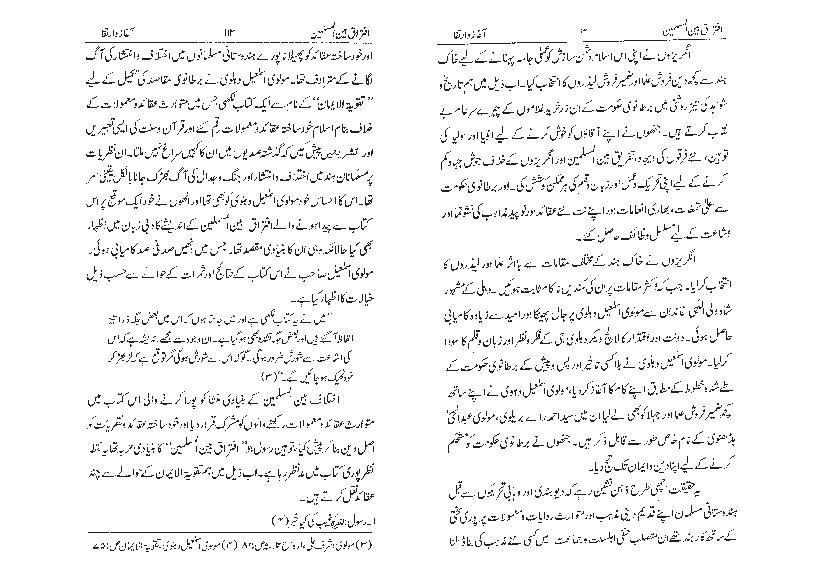 افتراق بین المسلمین ۳ آغاز و ارتقا
انگریزوں نے اپنی اس اسلام دشمن سازش کو عملی جامہ پہنانے کے لیے خاک
ہند سے کچھ دین فروش علما اور ضمیر فروش لیڈروں کا انتخاب کیا۔ اب ذیل میں ہم تاریخ و
شواہد کی تیز روشنی میں برطانوی حکومت کے ان زرخرید غلاموں کے چہرے سرعام بے
نقاب کرتے ہیں۔ جنھوں نے اپنے آقاؤں کو خوش کرنے کے لیے انبیا اور اولیا کی
توہین، نئے فرقوں کی ایجاد، تفریق بین المسلمین اور انگریزوں کے خلاف جہاد کم
کرنے کے لیے اپنی تحریک و عمل اور زبان و قلم کی ہر ممکن کوشش کی۔ اور برطانوی حکومت
سے اعلیٰ تمغات، بھاری انعامات اور اپنے نت نئے عقائد اور نوپید مذاہب کی نشو و نما اور
اشاعت کے لیے مسلسل وظائف حاصل کئے۔
انگریزوں نے خاک ہند کے مختلف مقامات سے بااثر علما اور لیڈروں کا
انتخاب کرلیا۔ جب کہ اکثر مقامات پر ان کی کمندیں ناکام ثابت ہوئیں۔ دہلی کے مشہور
شاہ ولی اللہی خاندان سے مولوی اسمٰعیل دہلوی پر جال پھینکا اور امید سے زیادہ کامیابی
حاصل ہوئی۔ دولت اور اقتدار کا لالچ دیکر دہلوی جی کے فکر و نظر اور زبان و قلم کا سودا
کرلیا۔ مولوی اسمٰعیل دہلوی نے بلا کسی تاخیر اور پس و پیش کے برطانوی حکومت کے
طے شدہ خطوط کے مطابق اپنے کام کا آغاز کردیا، مولوی اسمٰعیل دہلوی نے اپنے ساتھ
کچھ ضمیر فروش علما اور جہلا کو بھی لے لیا ان میں سید احمد رائے بریلوی، مولوی عبدالحئی
بڈھانوی کے نام خاص طور سے قابل ذکر ہیں۔ جنھوں نے برطانوی حکومت کو مستحکم
کرنے کے لیے اپنا دین و ایمان تک تج دیا۔
یہ حقیقت اچھی طرح ذہن نشین رہے کہ دیوبندی اور وہابی تحریکوں سے قبل
ہندوستانی مسلمان اپنے قدیم دینی مذہب اور متوارث روایات و معمولات پر پوری سختی
کے ساتھ کاربند تھے ان متصلب حنفی اہلسنت و جماعت میں کسی نئے مذہب کی بنا ڈالنا
افتراق بین المسلمین ۱۱۳ آغاز و ارتقا
اور خود ساختہ عقائد کو پھیلانا پورے ہندوستانی مسلمانوں میں اختلاف و انتشار کی آگ
لگانے کے مترادف تھا۔ مولوی اسمٰعیل دہلوی نے برطانوی مقاصد کی تکمیل کے لیے
”تقویۃ الایمان“ کے نام سے ایک کتاب لکھی جس میں متوارث عقائد و معمولات کے
خلاف بنام اسلام خود ساختہ عقائد و معمولات رقم کئے اور قرآن و سنت کی ایسی تعبیریں
اور تشریحیں پیش کیں کہ گذشتہ صدیوں میں ان کا کہیں سراغ نہیں ملتا۔ ان نظریات
پر مسلمانان ہند میں اختلاف و انتشار اور جنگ و جدال کی آگ بھڑک جانا بالکل یقینی امر
تھا۔ اس کا احساس خود مولوی اسمٰعیل دہلوی کو بھی تھا اور انھوں نے خود ایک موقع پر اس
کتاب سے پیدا ہونے والے افتراق بین المسلمین کے اندیشے کا دبی زبان میں اظہار
بھی کیا حالانکہ وہی ان کا بنیادی مقصد تھا۔ جس میں انھیں صد فی صد کامیابی ہوئی۔
مولوی اسمٰعیل صاحب نے اس کتاب کے نتائج اور ثمرات کے حوالے سے حسب ذیل
خیالات کا اظہار کیا ہے۔
”میں نے یہ کتاب لکھی ہے اور میں جانتا ہوں کہ اس میں بعض جگہ ذرا تیز
الفاظ آگئے ہیں اور بعض جگہ تشدد بھی ہوگیا ہے۔ ان وجوہ سے مجھے اندیشہ ہے کہ اس
کی اشاعت سے شورش ضرور ہوگی۔ گو کہ اس سے شورش ہوگی مگر توقع ہے کہ لڑ بھڑ کر
خود ٹھیک ہو جائیں گے۔“ (۳)
اختلاف بین المسلمین کے بنیادی منشا کو پورا کرنے والی اس کتاب میں
متوارث عقائد و معمولات رکھنے والوں کو مشرک قرار دیا اور خود ساختہ عقائد و نظریات کو
اصل دین بنا کر پیش کیا، توہین رسول جو ”افتراق بین المسلمین“ کا بنیادی حربہ تھا یہ نقطہ
نظر پوری کتاب میں مدنظر رہا ہے۔ اب ذیل میں ہم تقویۃ الایمان کے حوالے سے چند
عقائد نقل کرتے ہیں۔
۱۔ رسول اللہ کو غیب کی کیا خبر (۴)
(۳) مولوی اشرف علی، ارواح ثلاثہ، ص: ۸۲ (۴) مولوی اسمٰعیل دہلوی، تقویۃ الایمان، ص: ۷۵